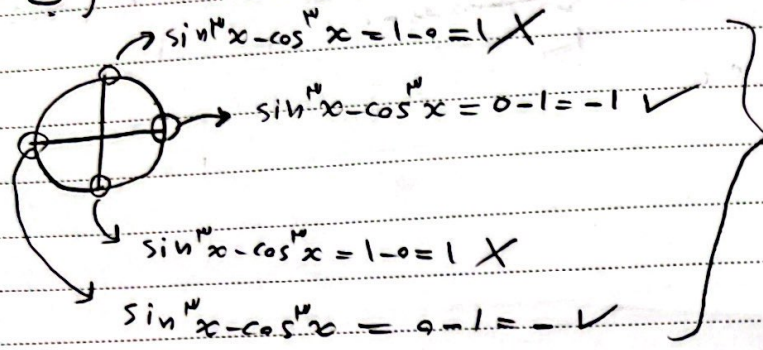 sin^۳ x - cos^۳ x = 1 - 0 = 1 X
sin^۳ x - cos^۳ x = 0 - 1 = -1 ✓
sin^۳ x - cos^۳ x = 1 - 0 = 1 X
sin^۳ x - cos^۳ x = 0 - 1 = - ✓